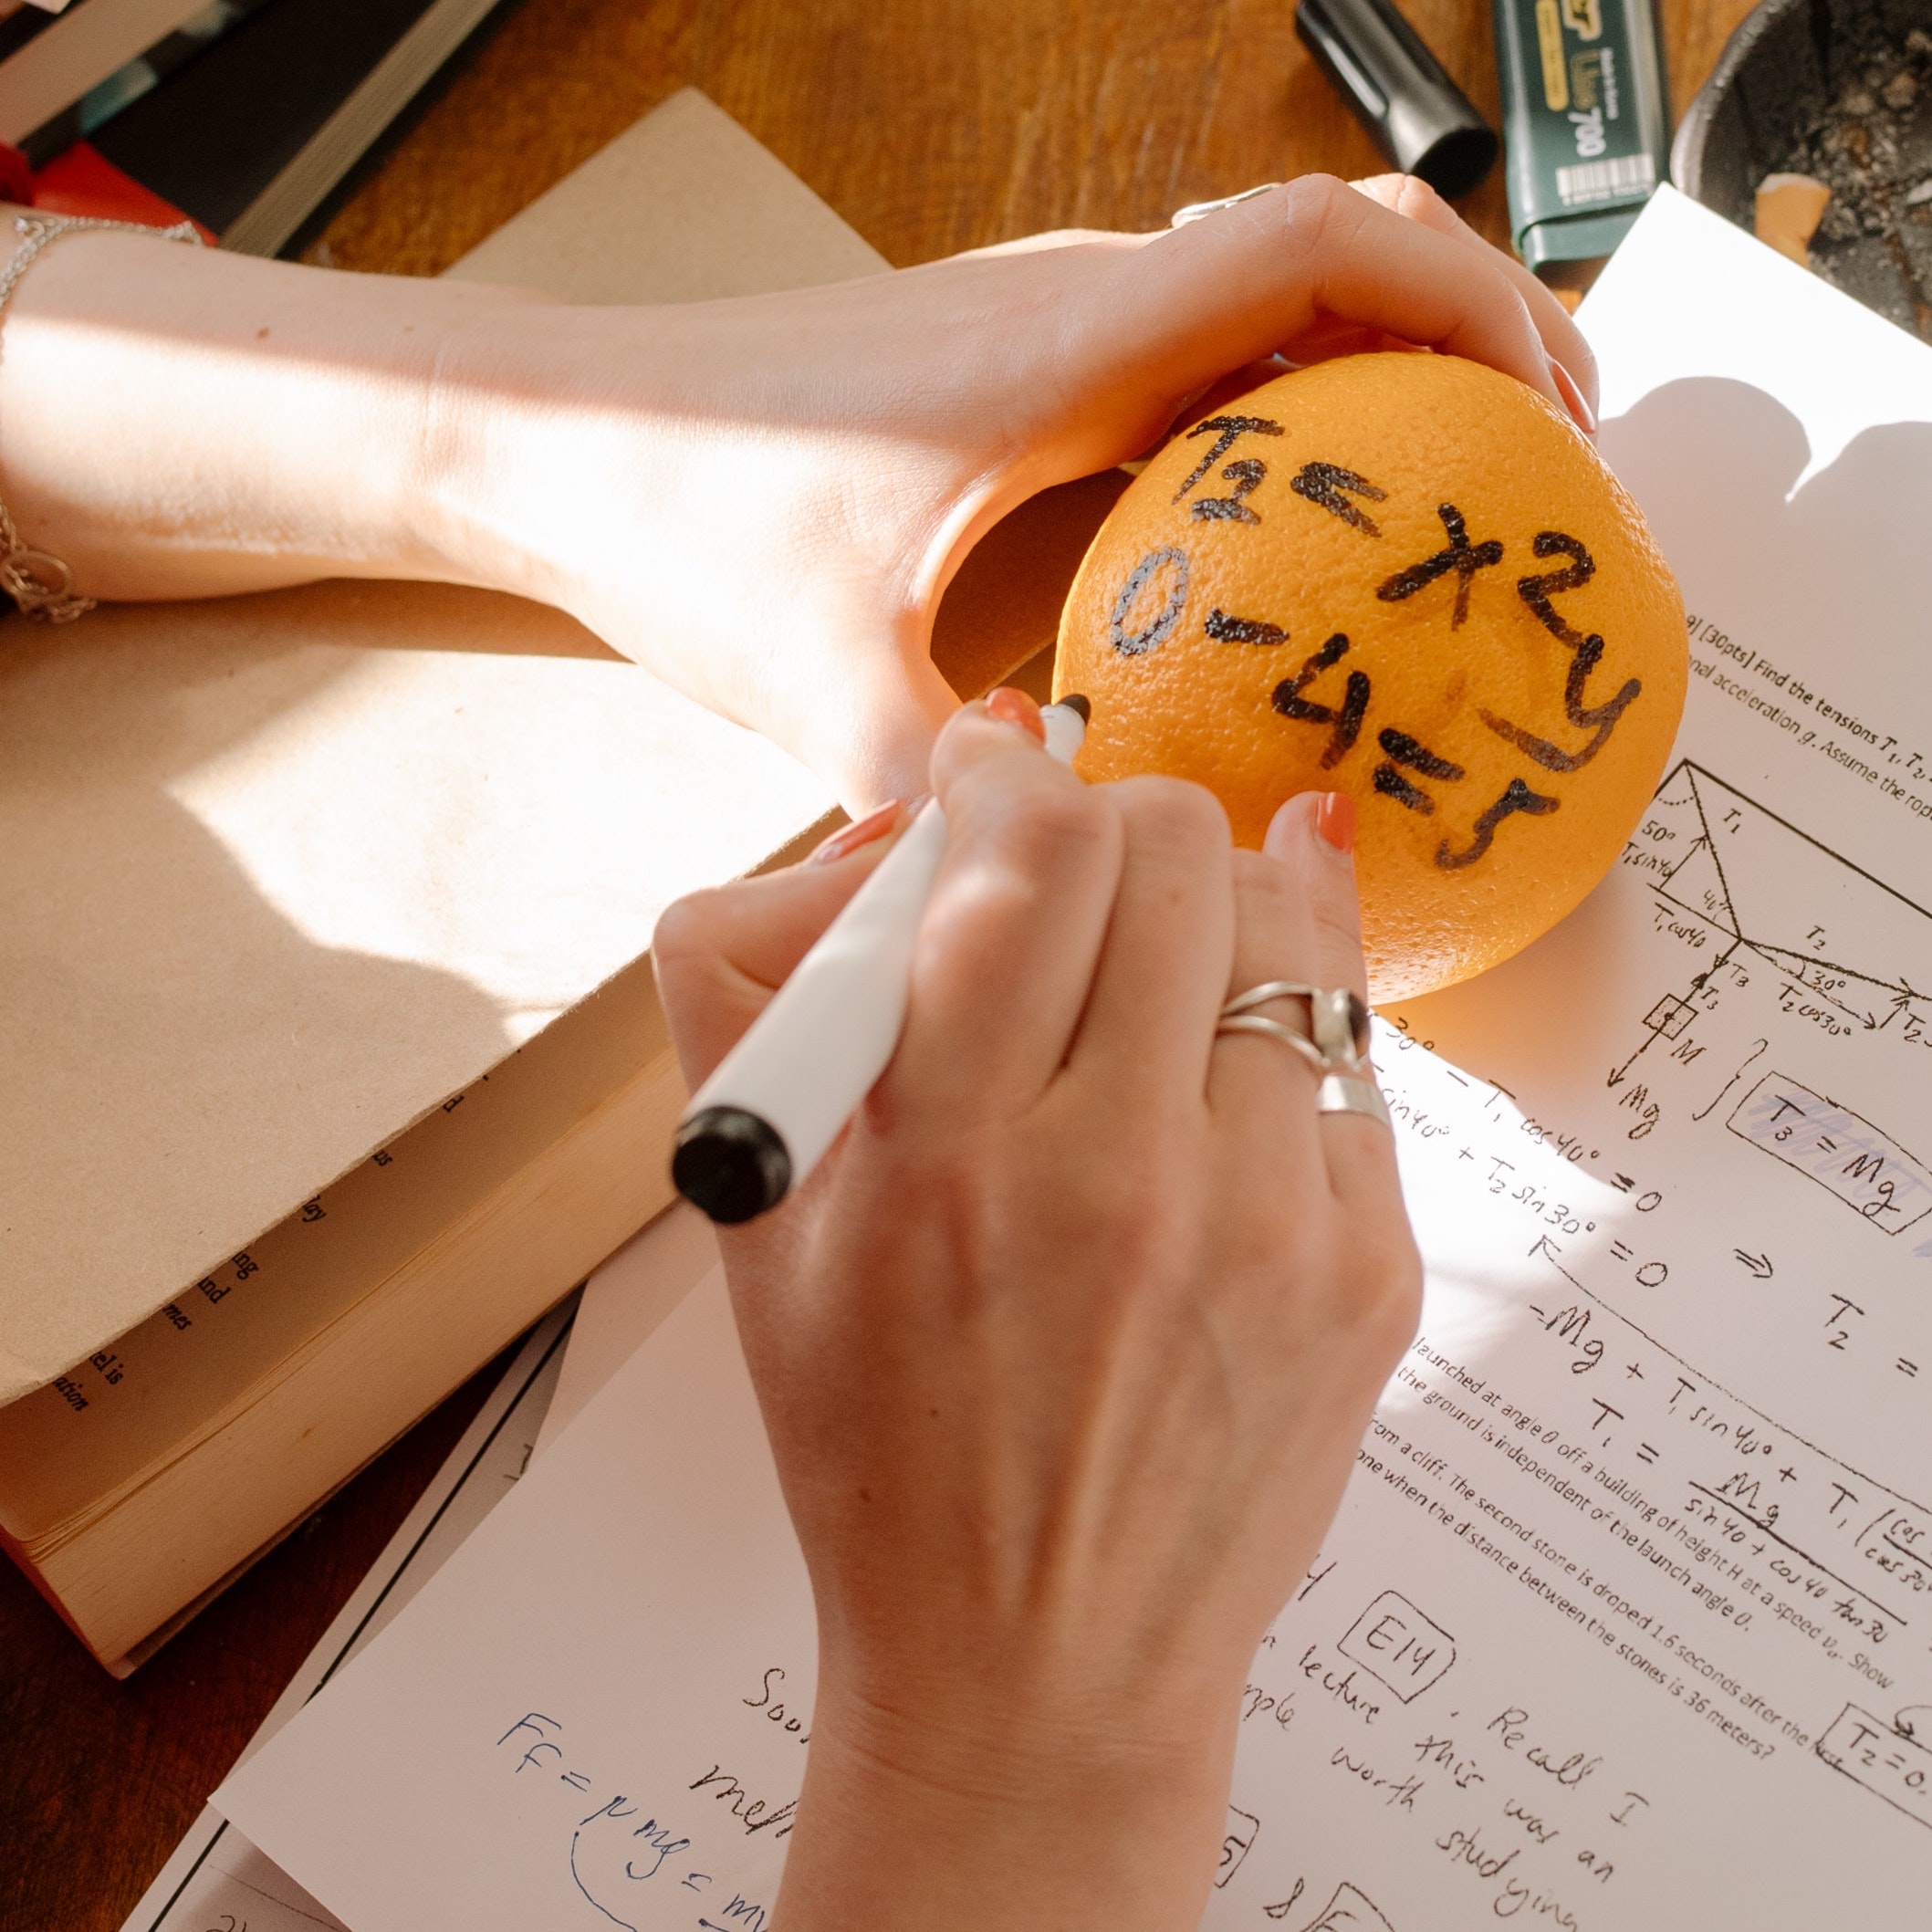 700
T₂ = x2y
0 - 4 = 5
9] [30pts] Find the tensions T₁, T₂,
nal acceleration g. Assume the rop
T₁
50°
T₁sin40
40°
T₁cos40
T₂
30°
T₂cos30°
T₂
T₃
T₃
M
Mg
T₃ = Mg
30° - T₁ cos40° = 0
sin40° + T₂ sin30° = 0 ⇒ T₂ =
-Mg + T₁ sin40° + T₁ (cos
cos30
T₁ = Mg
sin40 + cos40 tan30
launched at angle θ off a building of height H at a speed v₀. Show
the ground is independent of the launch angle θ.
from a cliff. The second stone is droped 1.6 seconds after the first
one when the distance between the stones is 36 meters?
T₂ = 0.
E14 . Recall I
lecture this was an
mple worth studying
5 &
F_f = μmg = mv
d
us
lay
ing
and
mes
el is
ation